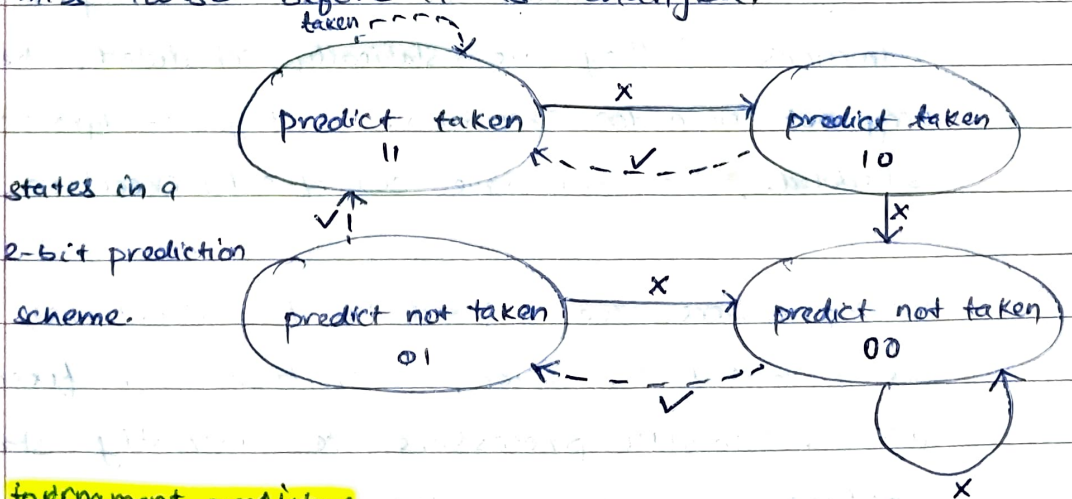 taken
x
predict taken
predict taken
11
✓
10
states in a
✓
x
2-bit prediction
x
scheme.
predict not taken
predict not taken
01
00
✓
x